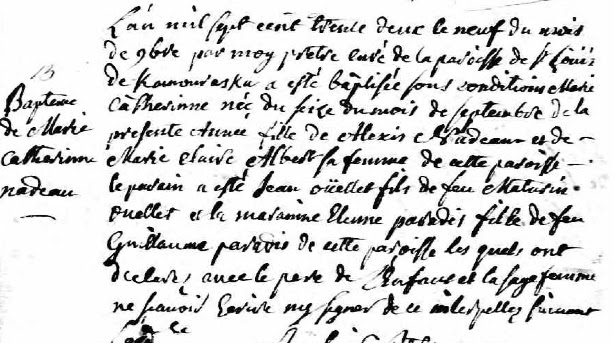 L'an mil sept cent trente deux le neuf du mois
de 9bre par moy prêtre curé de la paroisse de St Loüis
de Kamouraska a esté baptisée sous conditions Marie
Catherinne née du seize du mois de septembre de la
presente Année fille de Alexis Nadeau et de
Marie Claire Albert sa femme de cette paroisse
le parain a esté Jean oüellet fils de feu Maturin
oüellet et la marainne paradis fille de feu
Guillaume paradis de cette paroisse les quels ont
declarés avec le pere de l'Enfant et la sage femme
ne sçavoir Ecrire ny signer de ce interpellés suivant
B
Bapteme
de Marie
Catherinne
nadeau